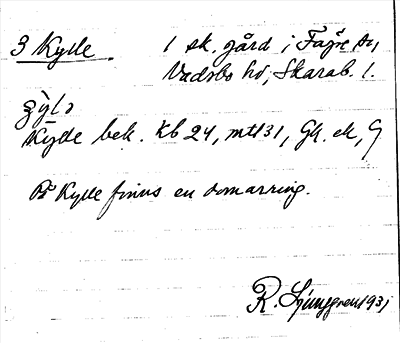 3 Kylle 1 sk. gård i Fägre sn,
Vadsbo hd, Skarab. l.
Kylle bek. kb 24, mtl 31, Gk. ek, G
På Kylle finns en domarring.
R. Ljunggren 1931